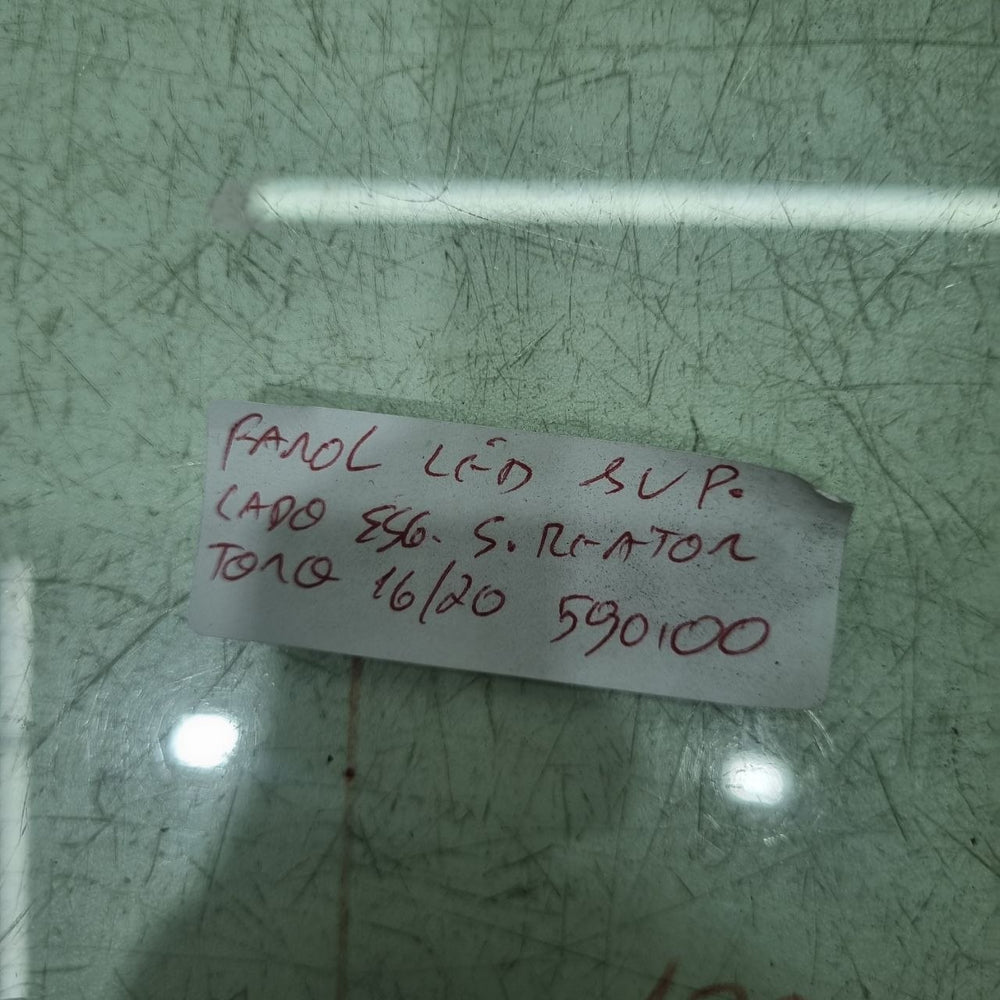 FAROL LÊD SUP.
LADO ESG. S. REATOR
TORO 16/20 590,00